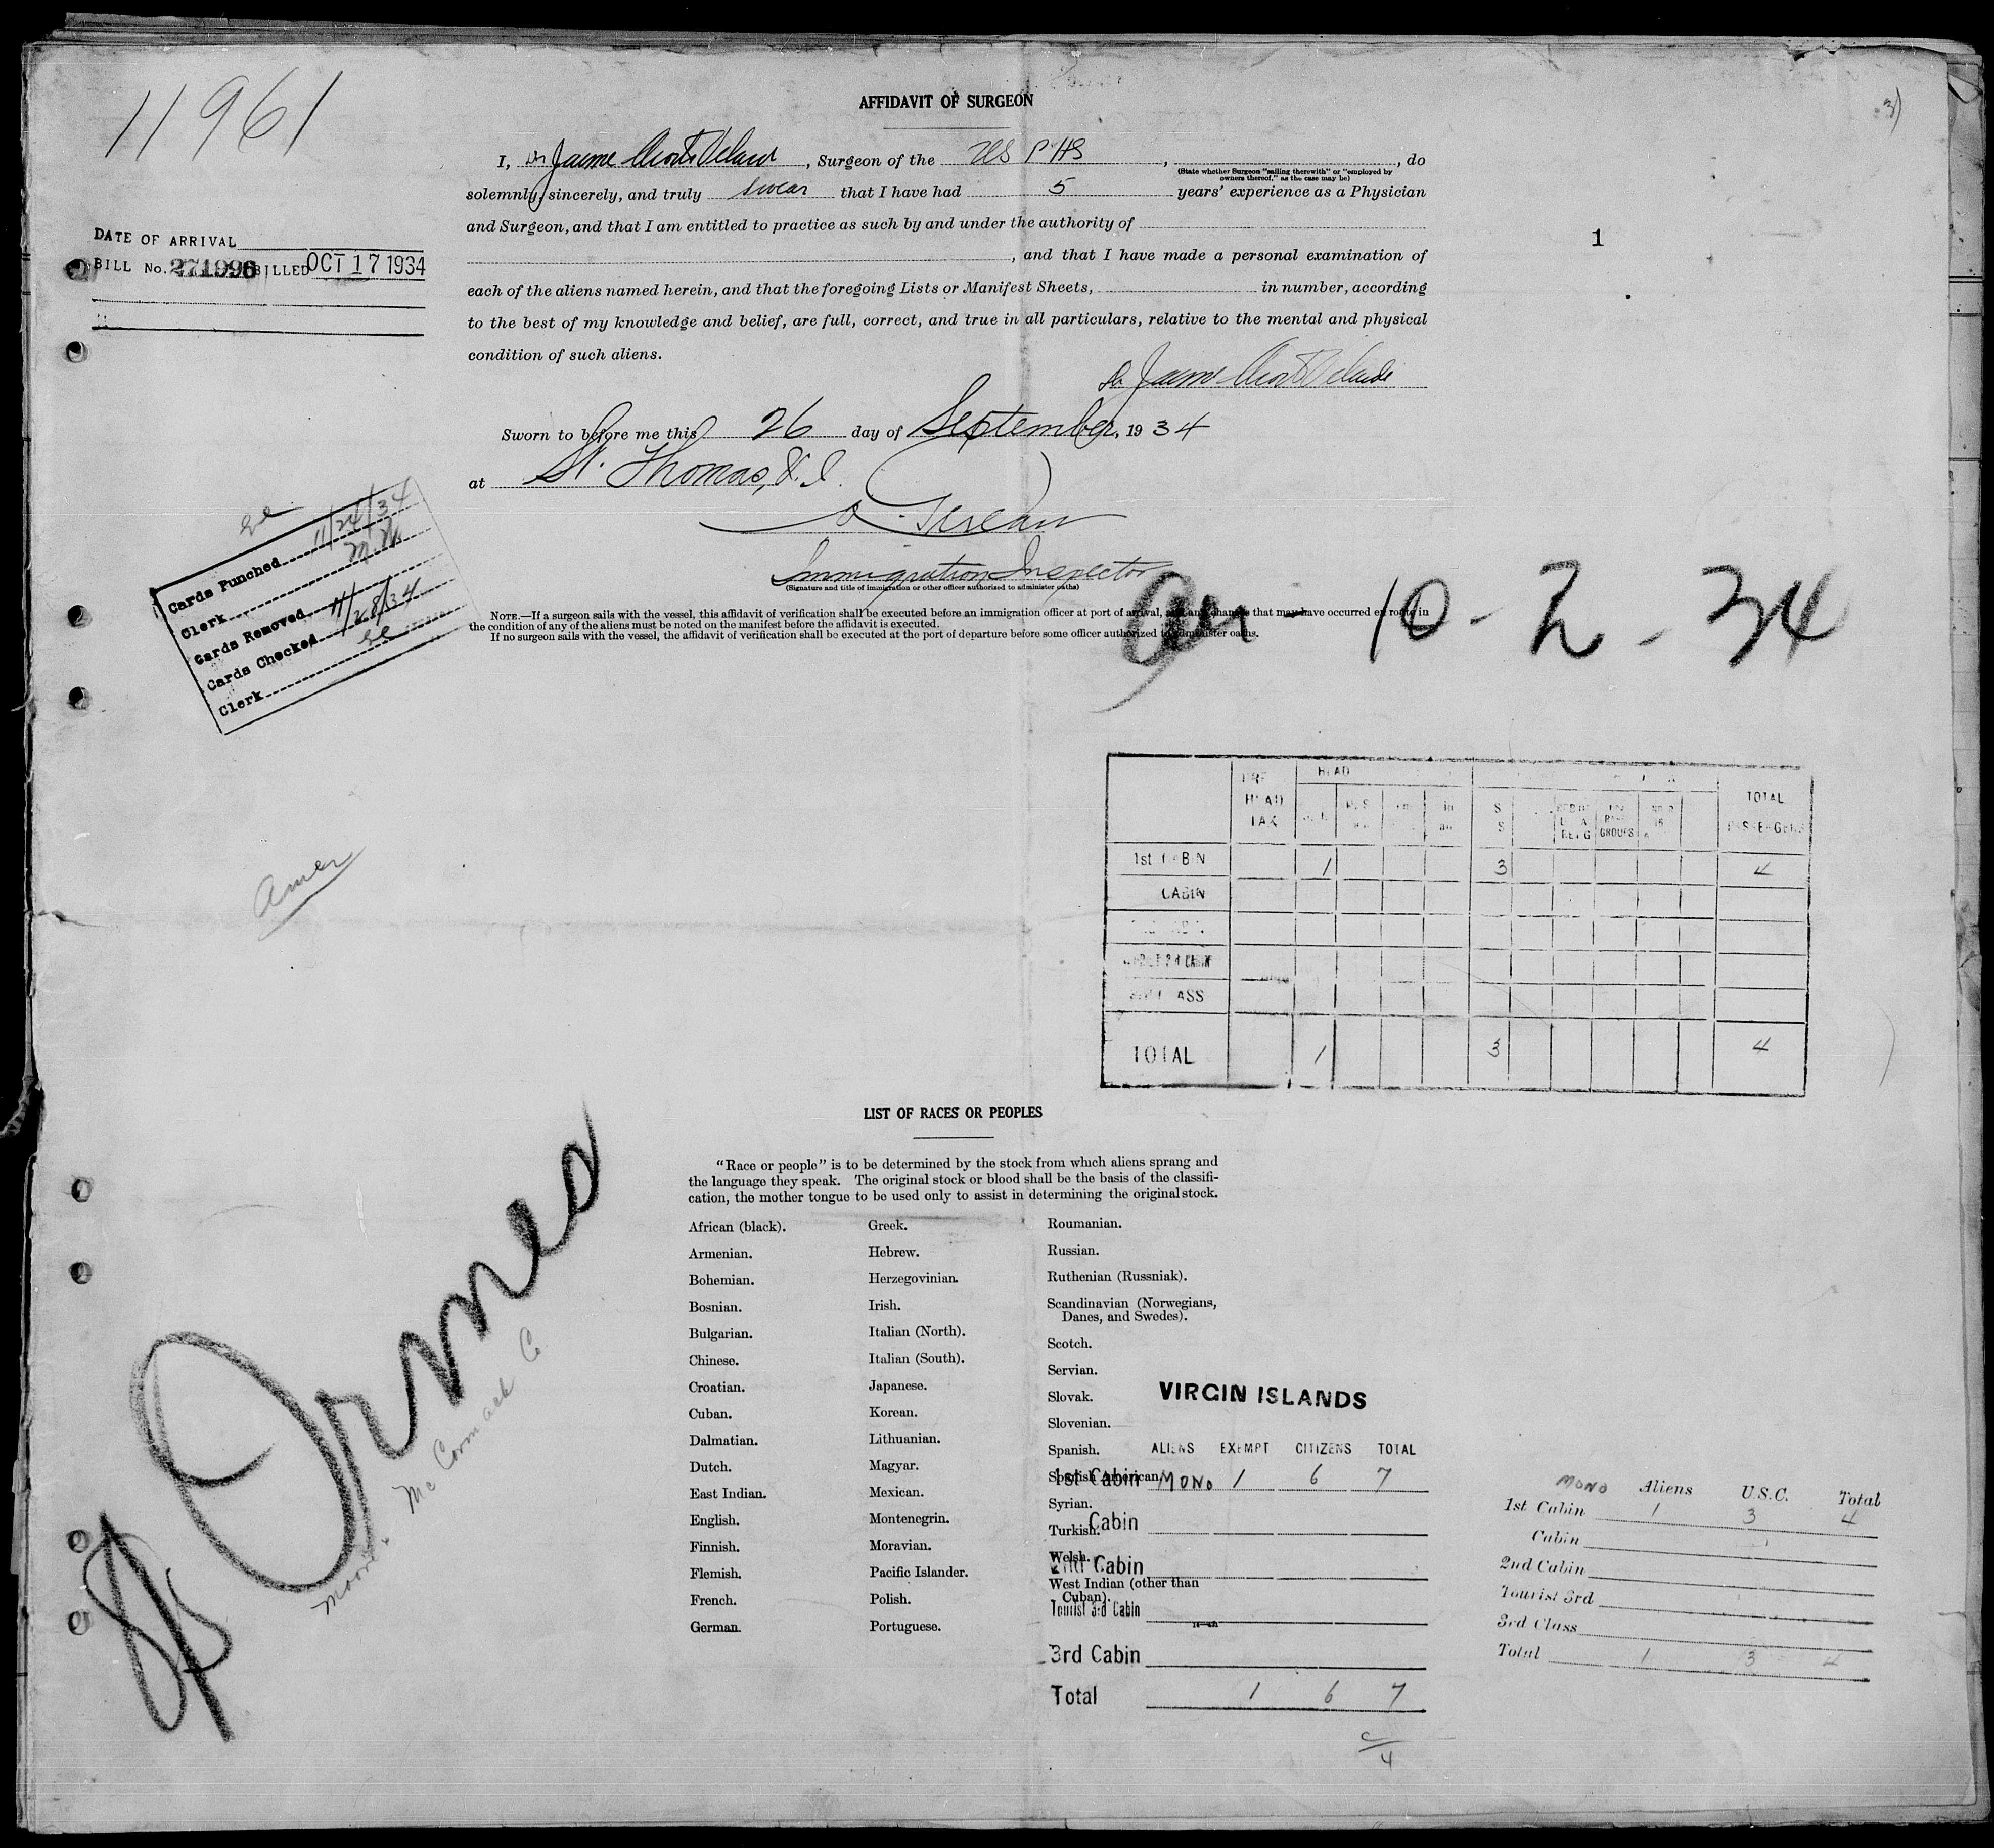 11961
3)
AFFIDAVIT OF SURGEON
I, Dr Jaime , Surgeon of the US PHS , , do
(State whether Surgeon "sailing therewith" or "employed by
owners thereof," as the case may be)
solemnly, sincerely, and truly swear that I have had 5 years' experience as a Physician
and Surgeon, and that I am entitled to practice as such by and under the authority of
, and that I have made a personal examination of
each of the aliens named herein, and that the foregoing Lists or Manifest Sheets, in number, according
to the best of my knowledge and belief, are full, correct, and true in all particulars, relative to the mental and physical
condition of such aliens.
Dr Jaime
DATE OF ARRIVAL
BILL No. 271996 BILLED OCT 17 1934
1
Sworn to before me this 26 day of September, 1934
at St. Thomas, V.I.
Immigration Inspector
(Signature and title of immigration or other officer authorized to administer oaths)
NOTE.—If a surgeon sails with the vessel, this affidavit of verification shall be executed before an immigration officer at port of arrival, and any changes that may have occurred en route in
the condition of any of the aliens must be noted on the manifest before the affidavit is executed.
If no surgeon sails with the vessel, the affidavit of verification shall be executed at the port of departure before some officer authorized to administer oaths.
Cards Punched 11/24/34
Clerk M.M.
Cards Removed
Cards Checked 11/28/34
Clerk
10-2-34
Amer
HEAD TAX
HEAD
GROUPS
TOTAL PASSENGERS
1st CABIN 1 3 4
CABIN
TOTAL 1 3 4
LIST OF RACES OR PEOPLES
"Race or people" is to be determined by the stock from which aliens sprang and
the language they speak. The original stock or blood shall be the basis of the classifi-
cation, the mother tongue to be used only to assist in determining the original stock.
African (black).
Armenian.
Bohemian.
Bosnian.
Bulgarian.
Chinese.
Croatian.
Cuban.
Dalmatian.
Dutch.
East Indian.
English.
Finnish.
Flemish.
French.
German.
Greek.
Hebrew.
Herzegovinian.
Irish.
Italian (North).
Italian (South).
Japanese.
Korean.
Lithuanian.
Magyar.
Mexican.
Montenegrin.
Moravian.
Pacific Islander.
Polish.
Portuguese.
Roumanian.
Russian.
Ruthenian (Russniak).
Scandinavian (Norwegians,
Danes, and Swedes).
Scotch.
Servian.
Slovak.
Slovenian.
Spanish.
Spanish American.
Syrian.
Turkish.
Welsh.
West Indian (other than
Cuban).
VIRGIN ISLANDS
ALIENS EXEMPT CITIZENS TOTAL
1st Cabin MONO 1 6 7
Cabin
2nd Cabin
Tourist 3rd Cabin
3rd Cabin
Total 1 6 7
C/4
MONO Aliens U.S.C. Total
1st Cabin 1 3 4
Cabin
2nd Cabin
Tourist 3rd
3rd Class
Total 1 3 4
SS Ormes
Moore-McCormack Co